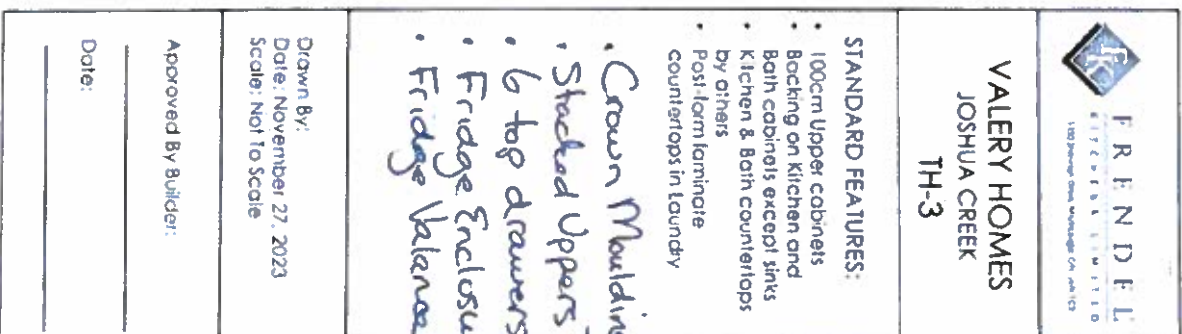 FRENDEL
KITCHENS LIMITED
VALERY HOMES
JOSHUA CREEK
TH-3
STANDARD FEATURES:
• 100cm Upper cabinets
• Backing on Kitchen and
Bath cabinets except sinks
• Kitchen & Bath countertops
by others
• Post-form laminate
countertops in Laundry
• Crown Mouldin
• Stacked Uppers
• 6 top drawers
• Fridge Enclosu
• Fridge Valance
Drawn By:
Date: November 27, 2023
Scale: Not To Scale
Approved By Builder:
Date: